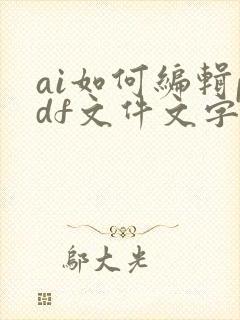 ai如何编辑p
df文件文字
邬大光